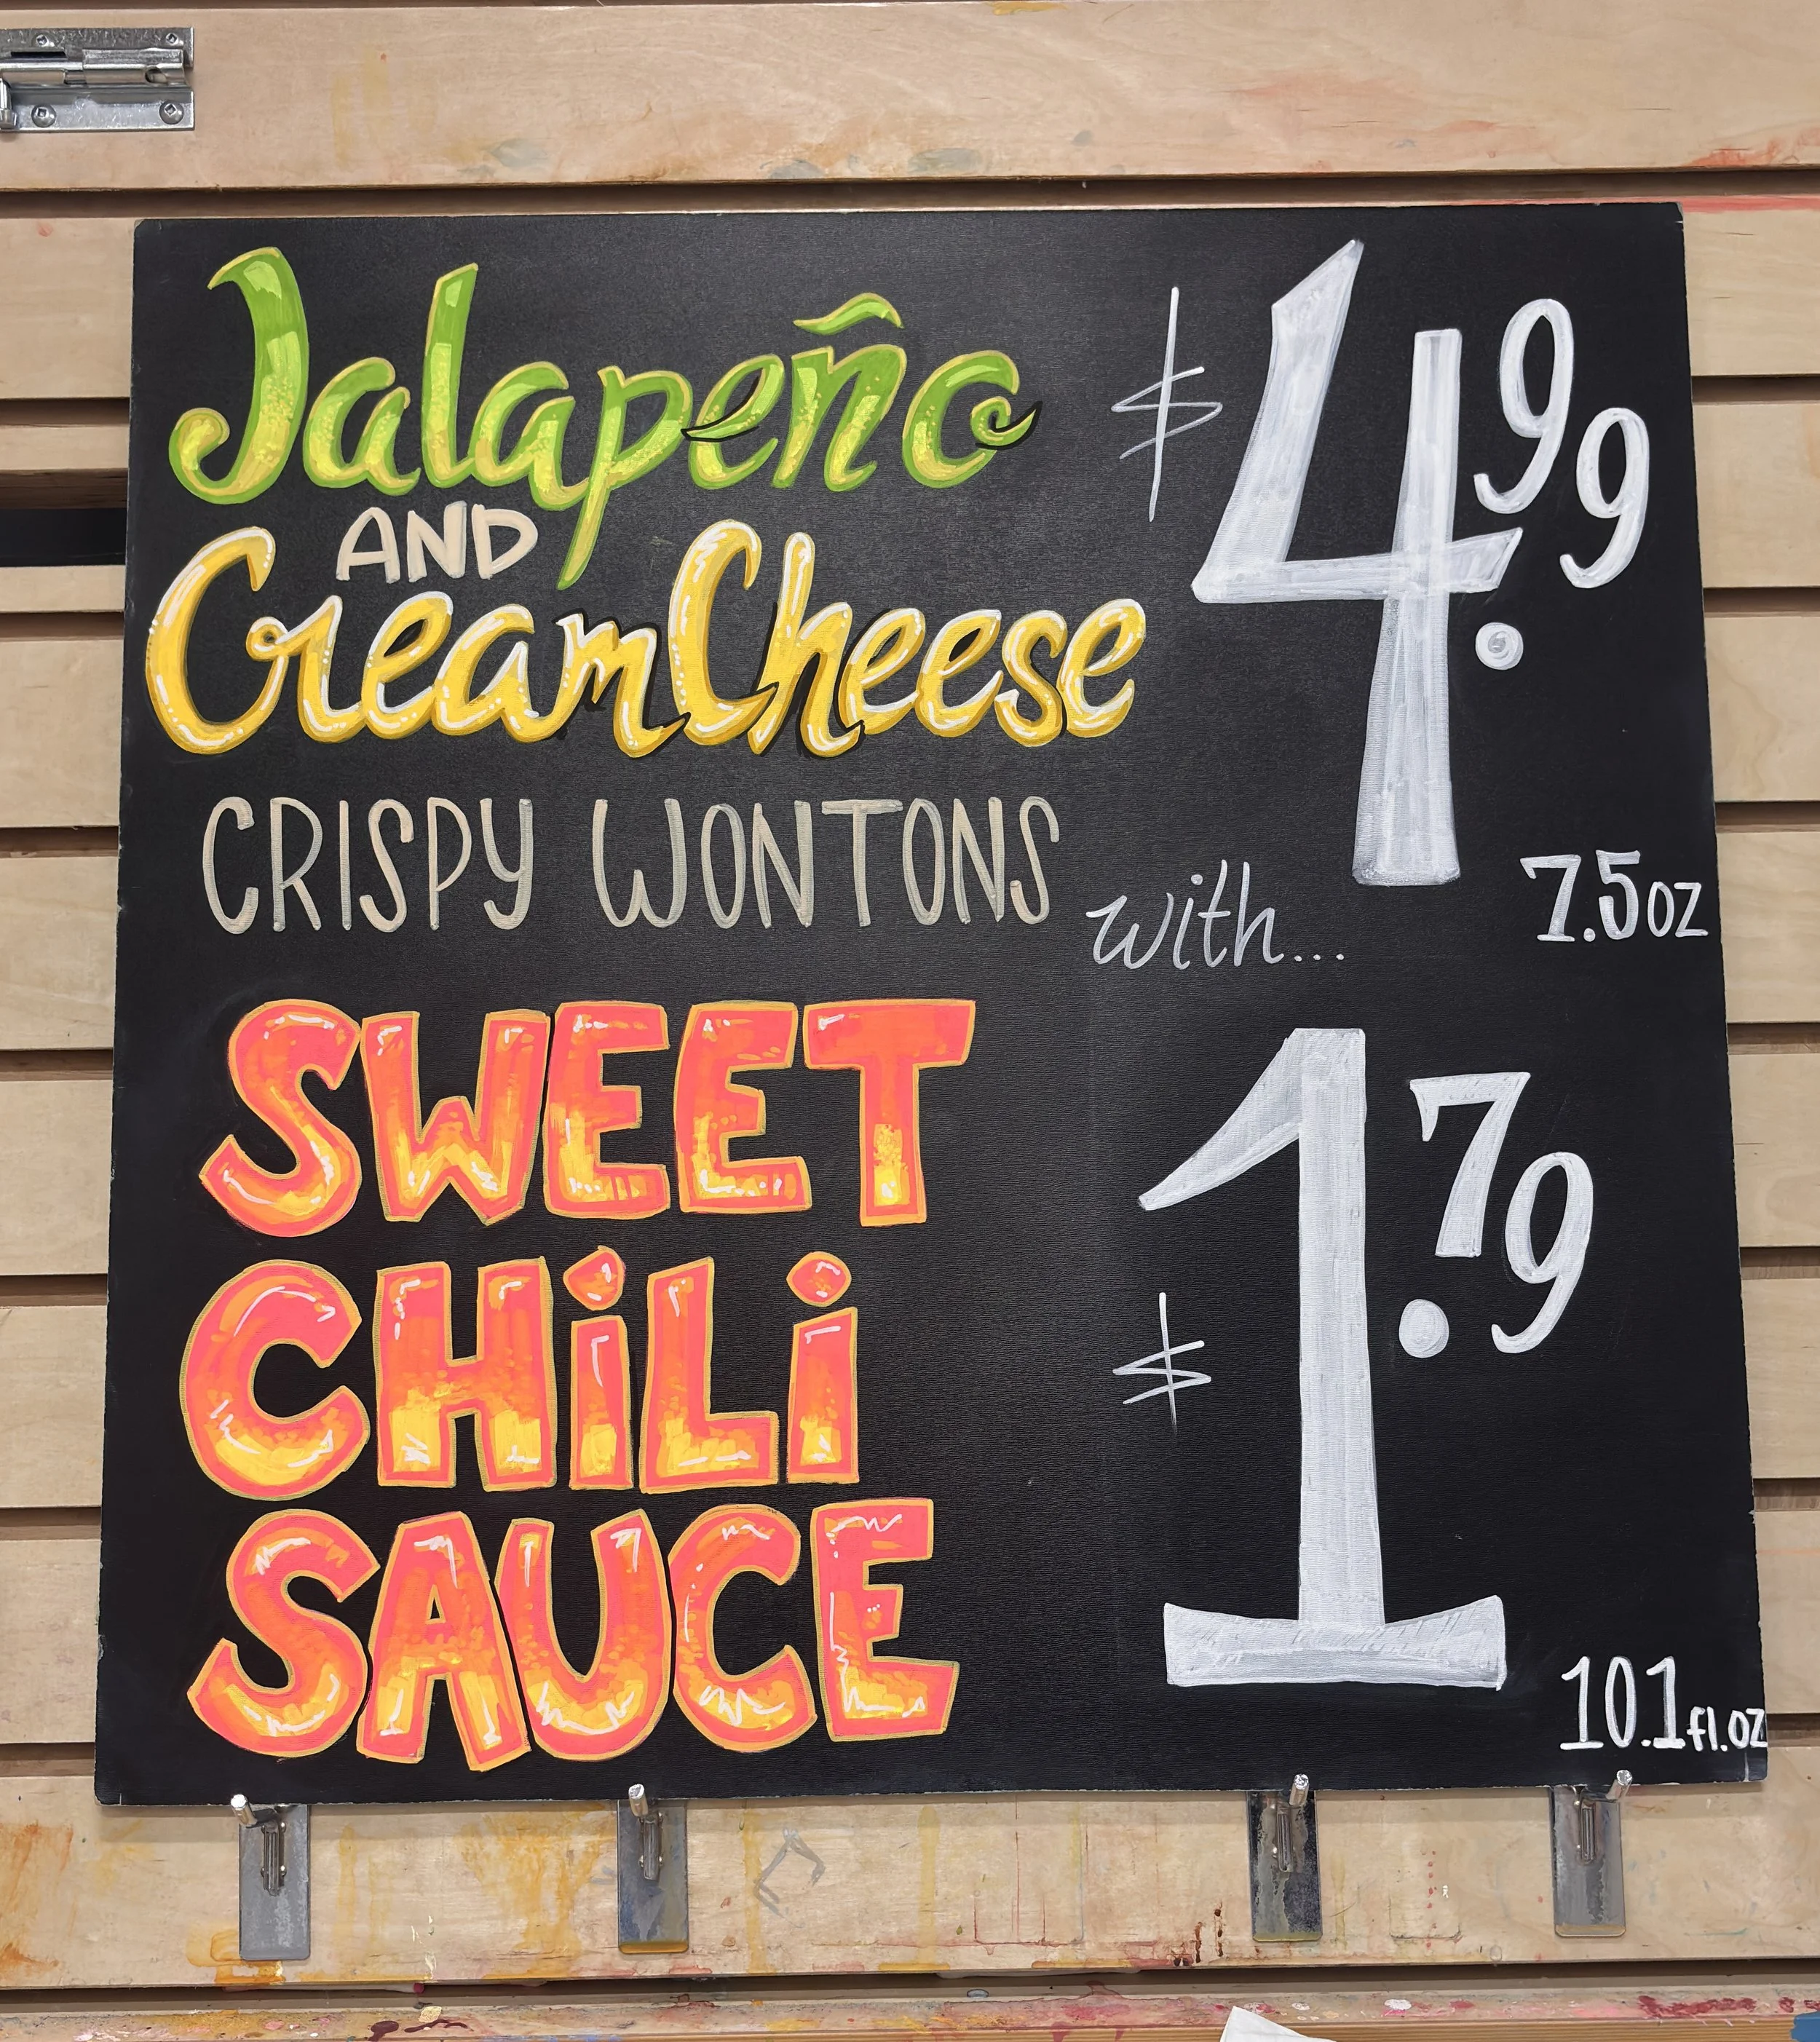 Jalapeño
AND
Cream Cheese
CRISPY WONTONS
$4.99
7.5oz
with...
SWEET
CHiLi
SAUCE
$1.79
10.1 fl.oz